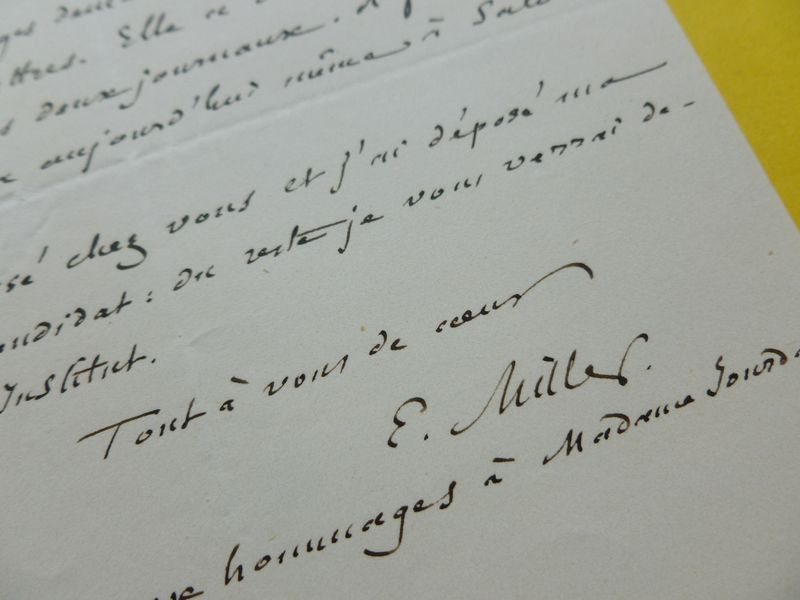 ttres. Elle
deux journaux.
aujourd'hui même à
sé chez vous et j'ai déposé ma
andidat : du reste je vous verrai de-
Institut.
Tout à vous de coeur
E. Miller.
hommages à Madame Jourda